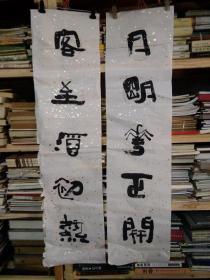 月明華正開
客至酒初熟